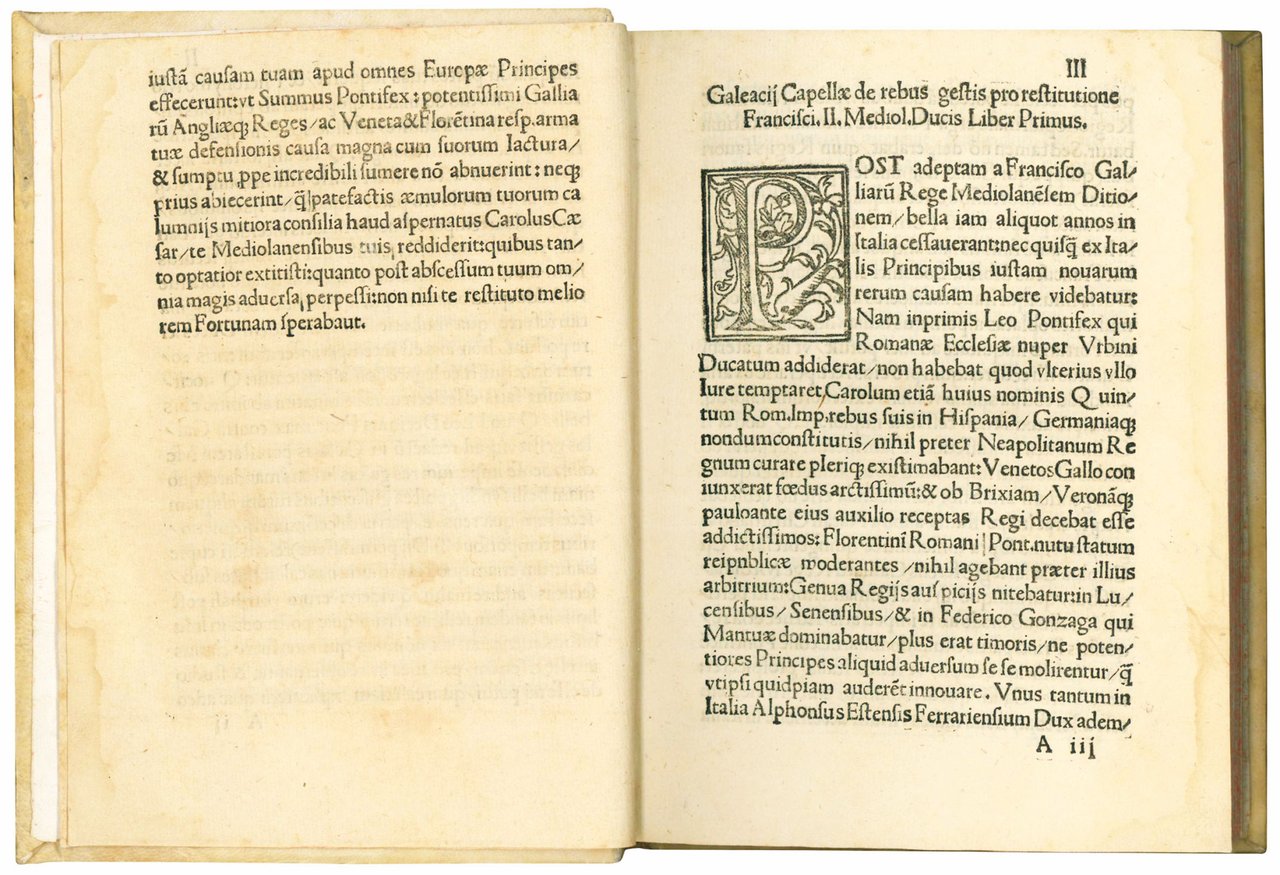 iustã causam tuam apud omnes Europæ Principes
effecerunt:vt Summus Pontifex:potentissimi Gallia
rũ Angliæq; Reges/ac Veneta&Florẽtina resp.arma
tuæ defensionis causa magna cum suorum iactura/
& sumptu ppe incredibili sumere nõ abnuerint:neq;
prius abiecerint/q̃ patefactis æmulorum tuorum ca
lumnijs mitiora consilia haud aspernatus CarolusCæ
sar/te Mediolanensibus tuis reddiderit:quibus tan/
to optatior extitisti:quanto post abscessum tuum om/
nia magis aduersa perpessi:non nisi te restituto melio
rem Fortunam sperabaut.
III
Galeacij Capellæ de rebus gestis pro restitutione
Francisci.II.Mediol.Ducis Liber Primus.
POST adeptam a Francisco Gal/
liarũ Rege Mediolanẽsem Ditio/
nem/bella iam aliquot annos in
Italia cessauerant:nec quisq̃ ex Ita/
lis Principibus iustam nouarum
rerum causam habere videbatur:
Nam inprimis Leo Pontifex qui
Romanæ Ecclesiæ nuper Vrbini
Ducatum addiderat/non habebat quod vlterius vllo
Iure temptaret,Carolum etiã huius nominis Quin/
tum Rom.Imp.rebus suis in Hispania/Germaniaq;
nondumconstitutis/nihil preter Neapolitanum Re
gnum curare pleriq; existimabant:Venetos Gallo con
iunxerat fœdus arctissimũ:& ob Brixiam/Veronãq;
pauloante eius auxilio receptas Regi decebat esse
addictissimos:Florentini Romani Pont.nutu statum
reipnblicæ moderantes/nihil agebant præter illius
arbitrium:Genua Regijs auspicijs nitebatur:in Lu/
censibus/Senensibus/& in Federico Gonzaga qui
Mantuæ dominabatur/plus erat timoris/ne poten/
tiores Principes aliquid aduersum se se molirentur/q̃
vtipsi quidpiam auderẽt innouare.Vnus tantum in
Italia Alphonsus Estensis Ferrariensium Dux adem/
A iij